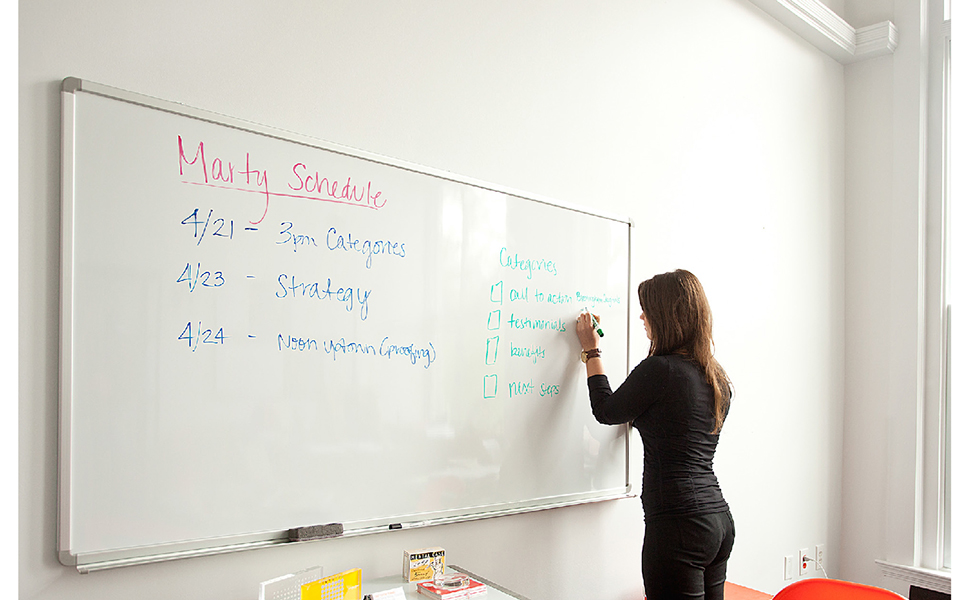 Marty Schedule
4/21 - 3pm Categories
4/23 - Strategy
4/24 - Noon Uptown (proofing)
Categories
call to action
testimonials
benefits
next steps
MENTAL CASE